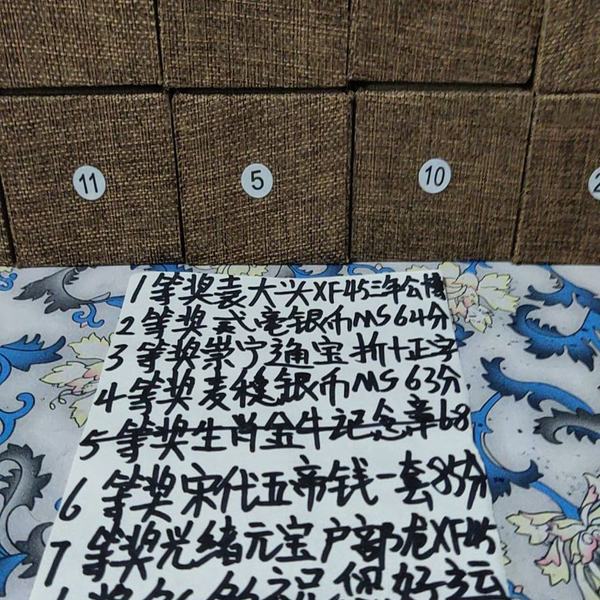 11
5
10
2
1等奖袁大头XF45三年公博
2等奖贰毫银币MS64分
3等奖崇宁通宝折十正字
4等奖麦穗银币MS63分
5等奖生肖金牛记念章68
6等奖宋代五帝钱一套85分
7等奖光绪元宝户部龙XF45
祝你好运